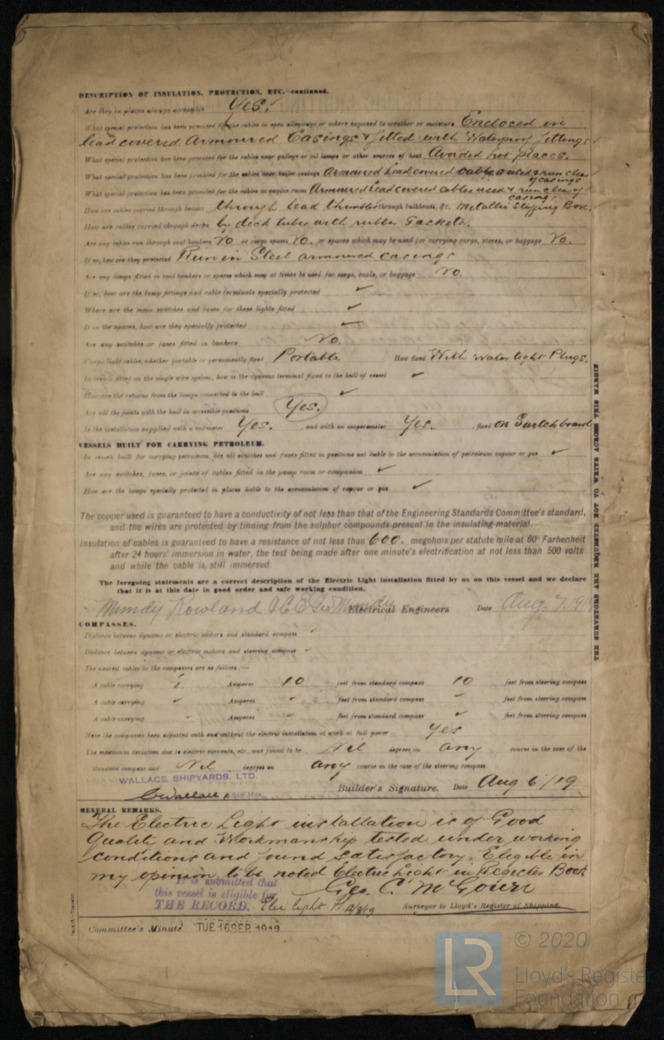 DESCRIPTION OF INSULATION, PROTECTION, ETC.—continued.
Are they in places always accessible Yes.
What special protection has been provided for the cables in open alleyways or others exposed to weather or moisture Enclosed in
lead covered Armoured Casings & fitted with Waterproof fittings
What special protection has been provided for the cables near galleys or oil lamps or other sources of heat Avoided hot places.
What special protection has been provided for the cables near boiler casings Armoured Lead covered cable used & run clear
of casings
What special protection has been provided for the cables in engine room Armoured Lead covered cable used & run clear of
casing.
How are cables carried through beams through lead thimbles through bulkheads, &c. Metallic Stuffing Box.
How are cables carried through decks by deck tubes with rubber Gaskets.
Are any cables run through coal bunkers No or cargo spaces No. or spaces which may be used for carrying cargo, stores, or baggage No.
If so, how are they protected Run in Steel armoured casings
Are any lamps fitted in coal bunkers or spaces which may at times be used for cargo, coals, or baggage No.
If so, how are the lamp fittings and cable terminals specially protected ✓
Where are the main switches and fuses for these lights fitted ✓
If in the spaces, how are they specially protected ✓
Are any switches or fuses fitted in bunkers No.
Cargo light cables, whether portable or permanently fixed Portable How fixed With water tight Plugs.
In vessels fitted on the single wire system, how is the dynamo terminal fixed to the hull of vessel ✓
How are the returns from the lamps connected to the hull ✓
Are all the joints with the hull in accessible positions Yes.
Is the installation supplied with a voltmeter Yes. and with an amperemeter Yes. , fixed on Switchboard
VESSELS BUILT FOR CARRYING PETROLEUM.
In vessels built for carrying petroleum, are all switches and fuses fitted in positions not liable to the accumulation of petroleum vapour or gas ✓
Are any switches, fuses, or joints of cables fitted in the pump room or companion ✓
How are the lamps specially protected in places liable to the accumulation of vapour or gas ✓
The copper used is guaranteed to have a conductivity of not less than that of the Engineering Standards Committee's standard,
and the wires are protected by tinning from the sulphur compounds present in the insulating material.
Insulation of cables is guaranteed to have a resistance of not less than 600. megohms per statute mile at 60° Farhenheit
after 24 hours' immersion in water, the test being made after one minute's electrification at not less than 500 volts
and while the cable is still immersed.
The foregoing statements are a correct description of the Electric Light installation fitted by us on this vessel and we declare
that it is at this date in good order and safe working condition.
Mundy Rowland & Co Electrical Engineers Date Aug 7, 9
COMPASSES.
Distance between dynamo or electric motors and standard compass ✓
Distance between dynamo or electric motors and steering compass ✓
The nearest cables to the compasses are as follows:—
A cable carrying 2 Amperes 10 feet from standard compass 10 feet from steering compass
A cable carrying ✓ Amperes ✓ feet from standard compass ✓ feet from steering compass
A cable carrying ✓ Amperes ✓ feet from standard compass ✓ feet from steering compass
Have the compasses been adjusted with and without the electric installation at work at full power Yes
The maximum deviation due to electric currents, etc., was found to be Nil degrees on any course in the case of the
standard compass and Nil degrees on any course in the case of the steering compass.
WALLACE SHIPYARDS, LTD.
C Wallace Builder's Signature. Date Aug 6/19
GENERAL REMARKS.
The Electric Light installation is of Good
Quality and Workmanship tested under working
conditions and found satisfactory. Eligible in
my opinion to be noted Electric Light in Register Book
It is submitted that
this vessel is eligible for
THE RECORD. Elec light
Geo. C. McGouri
Surveyor to Lloyd's Register of Shipping.
Committee's Minute TUE 16 SEP 1919
THE SURVEYORS ARE REQUESTED NOT TO WRITE ACROSS THIS MARGIN
LR
© 2020
Lloyd's Register
Foundation